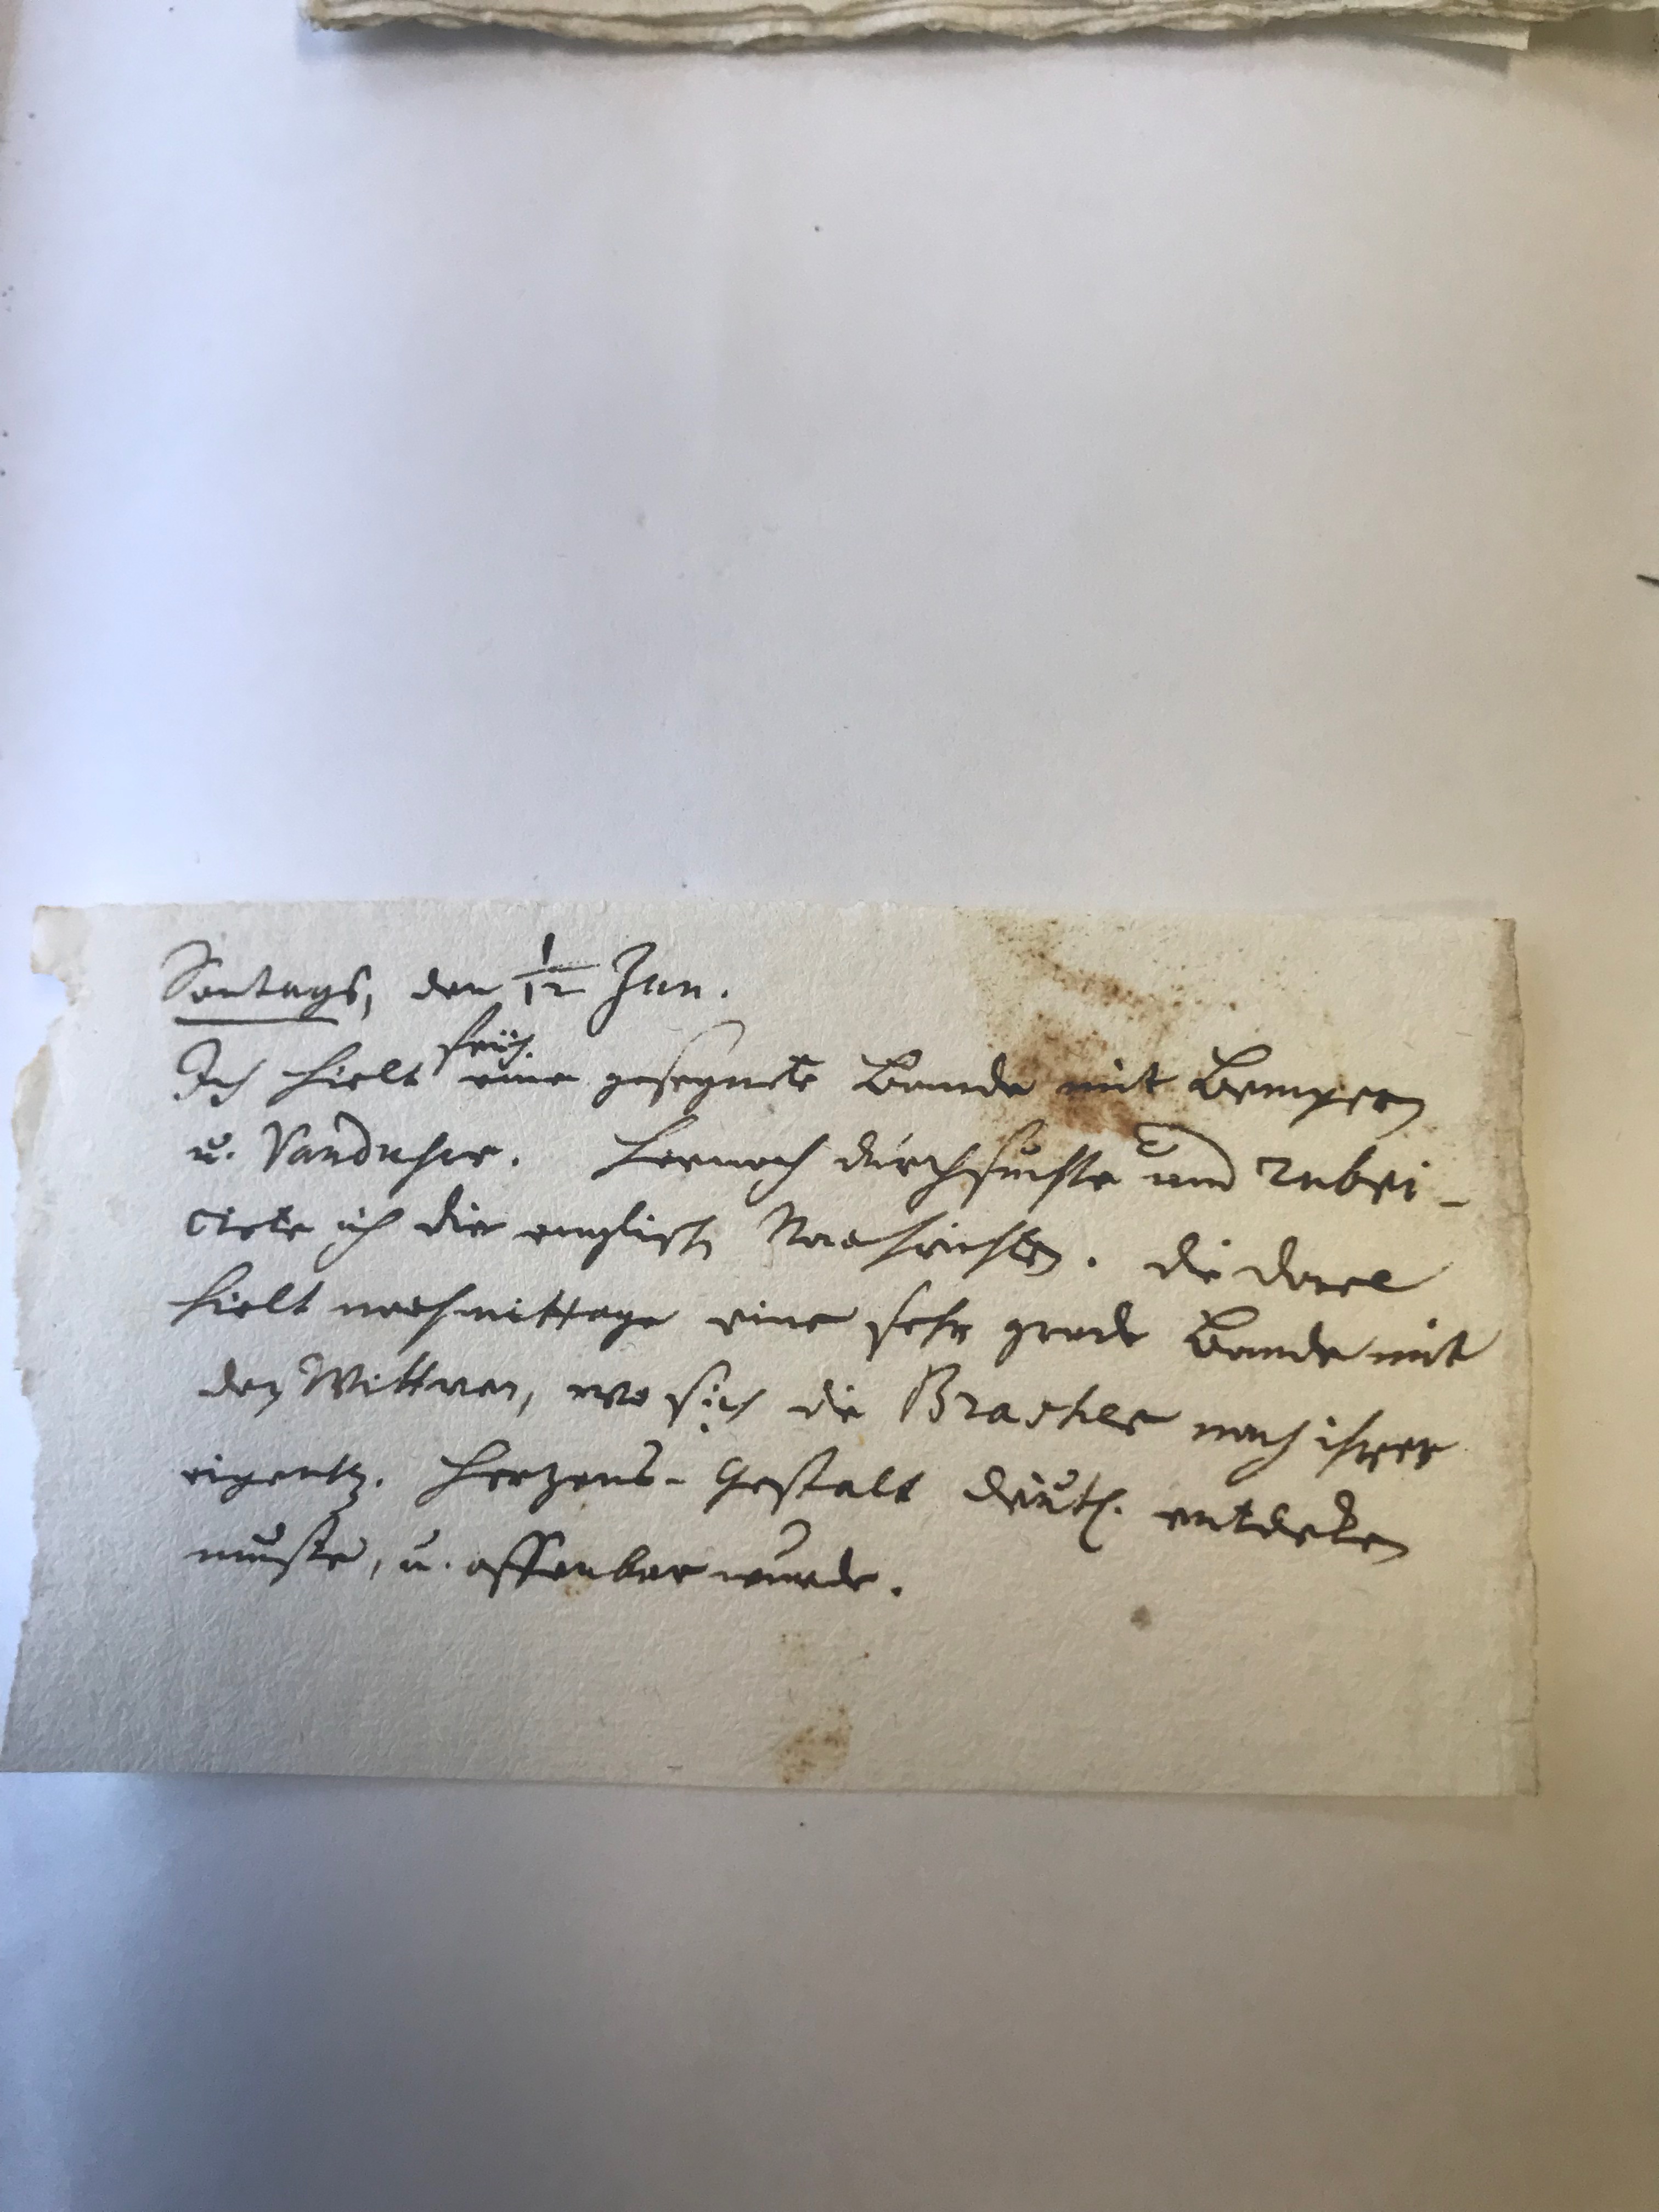 Sontags, den 1/12 Jan.
früh.
Ich hielt eine gesegnete Bande mit Bempern
u. Vanduser. Hernach durchsuchte und rubri-
cirte ich die englisch Nachrichten. die
hielt nachmittage eine sehr grade Bande mit
den Wittwen, wo sich die nach ihrer
eigentl. Hertzens-Gestalt deutl. entdeken
muste, u. offenbar wurde.